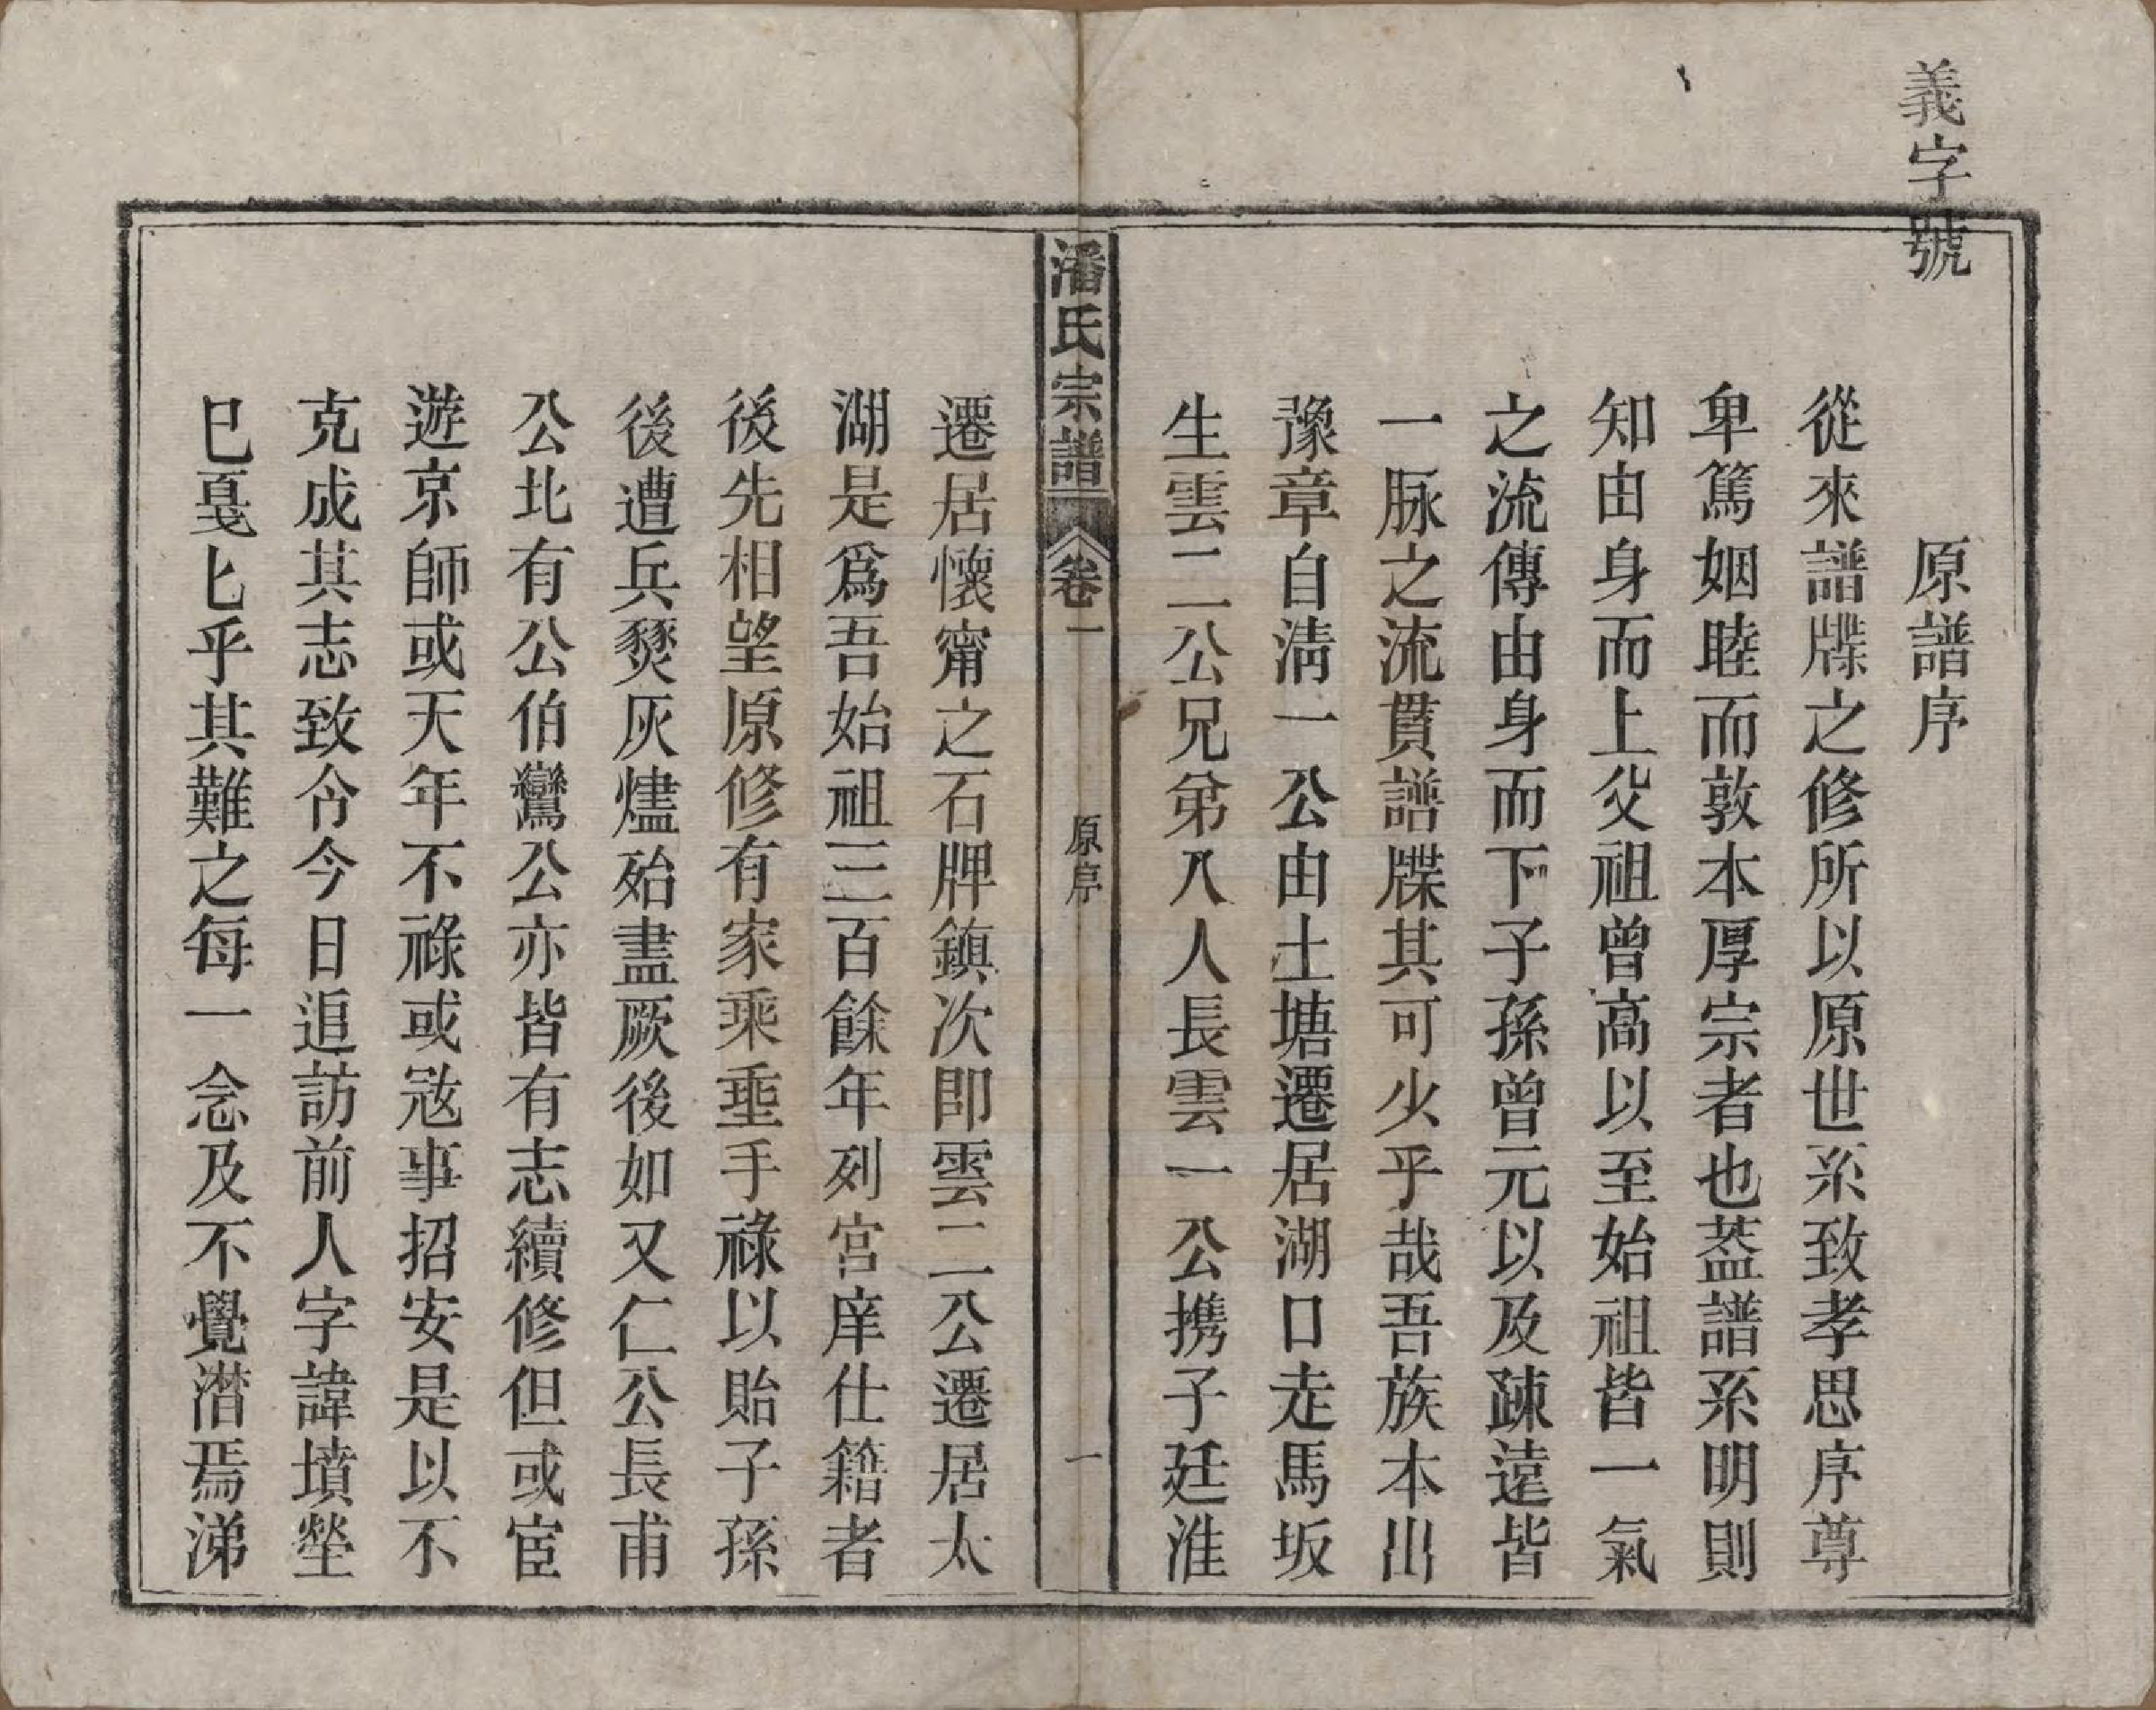 義字號
原譜序
從來譜牒之修所以原世系致孝思序尊
卑篤姻睦而敦本厚宗者也葢譜系明則
知由身而上父祖曾高以至始祖皆一氣
之流傳由身而下子孫曾元以及疎遠皆
一脉之流貫譜牒其可少乎哉吾族本出
豫章自淸一公由土塘遷居湖口走馬坂
生雲二公兄弟八人長雲一公携子廷淮
潘氏宗譜
卷一
原序
一
遷居懷甯之石牌鎮次即雲二公遷居太
湖是爲吾始祖三百餘年列宮庠仕籍者
後先相望原修有家乘垂手祿以貽子孫
後遭兵燹灰燼殆盡厥後如又仁公長甫
公北有公伯鸞公亦皆有志續修但或宦
遊京師或天年不祿或冦事招安是以不
克成其志致令今日追訪前人字諱墳塋
巳戛匕乎其難之每一念及不覺潸焉涕